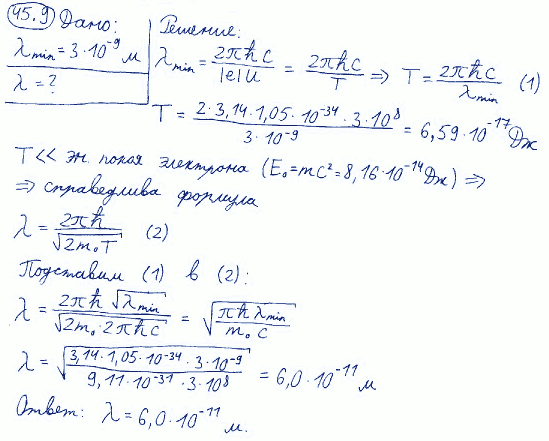 45.9 Дано:
λmin = 3·10⁻⁹ м
λ = ?
Решение:
λmin = 2πħc/|e|U = 2πħc/T ⇒ T = 2πħc/λmin (1)
T = 2·3,14·1,05·10⁻³⁴·3·10⁸/3·10⁻⁹ = 6,59·10⁻¹⁷ Дж
T << эн. покоя электрона (E₀=mc²=8,16·10⁻¹⁴ Дж) ⇒
⇒ справедлива формула
λ = 2πħ/√2m₀T (2)
Подставим (1) в (2):
λ = 2πħ√λmin/√2m₀·2πħc = √πħλmin/m₀c
λ = √3,14·1,05·10⁻³⁴·3·10⁻⁹/9,11·10⁻³¹·3·10⁸ = 6,0·10⁻¹¹ м
Ответ: λ = 6,0·10⁻¹¹ м.